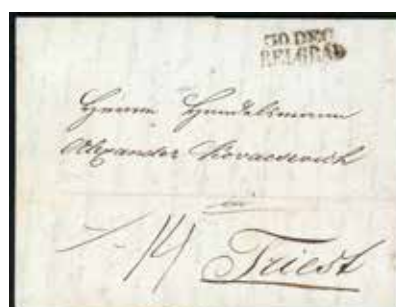 30 DEC
BELGRAD
Herrn Handelsmann
Alexander Kovacsevich
in
14 Triest